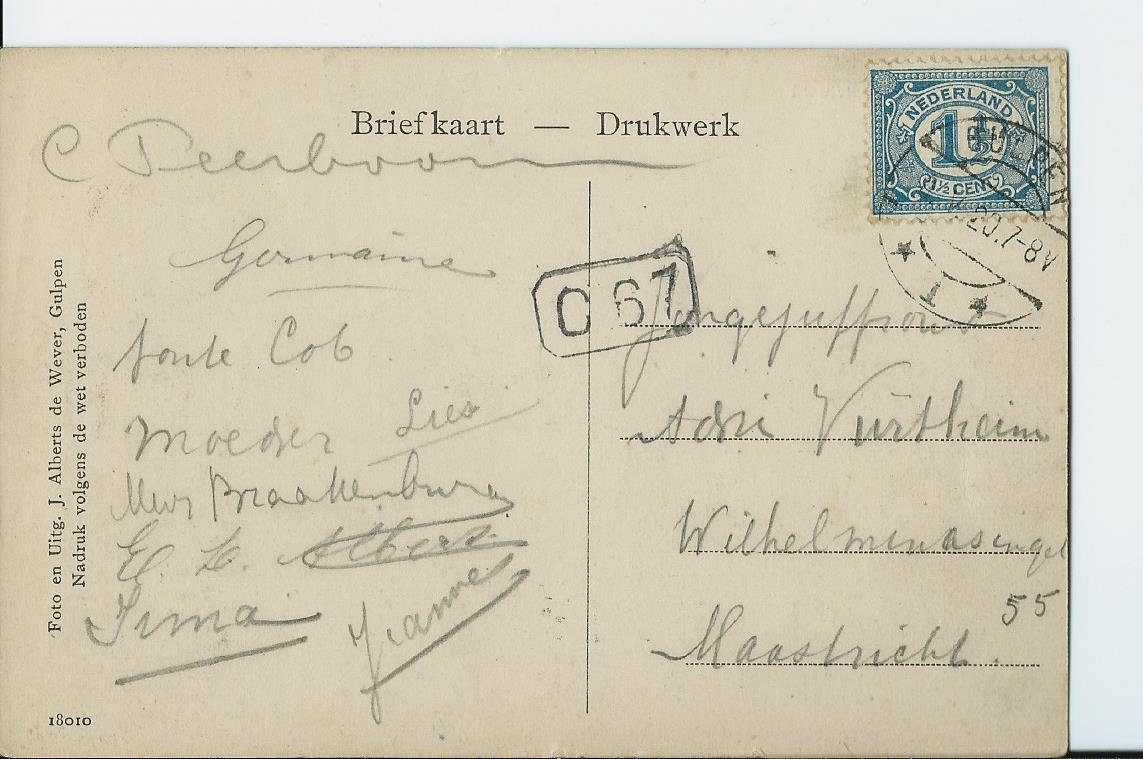 Briefkaart — Drukwerk
C Peerboom
Germaine
tante Cob
Moeder
Lies
Mevr Braakenburg
E. L. Albert
Irma
Jeanne
Foto en Uitg. J. Alberts de Wever, Gulpen
Nadruk volgens de wet verboden
18010
NEDERLAND
1½
1½ CENT
GULPEN
20.7-8V
1
C 67
Jongejuffrouw
Adri Vürtheim
Wilhelminasingel
55
Maastricht.